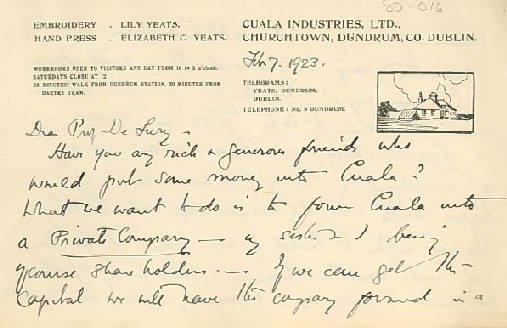 80-016
EMBROIDERY . LILY YEATS.
HAND PRESS . ELIZABETH C. YEATS.
CUALA INDUSTRIES, LTD.,
CHURCHTOWN, DUNDRUM, CO. DUBLIN.
WORKROOMS OPEN TO VISITORS ANY DAY FROM 10 to 5 o'clock.
SATURDAYS CLOSE AT 12
15 MINUTES' WALK FROM DUNDRUM STATION, 20 MINUTES FROM
TRAM.
Feb 7. 1923.
TELEGRAMS:
YEATS, DUNDRUM,
DUBLIN.
TELEPHONE: No. 9 DUNDRUM.
Dear Prof De Lury -
Have you any rich & generous friends who
would put some money into Cuala?
What we want to do is to form Cuala into
a Private Company — my sister & I being
of course share holders — If we can get the
Capital we will have the company formed in a